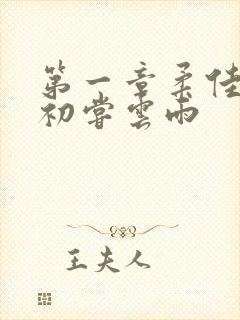 第一章柔佳
初嘗雲雨
王夫人